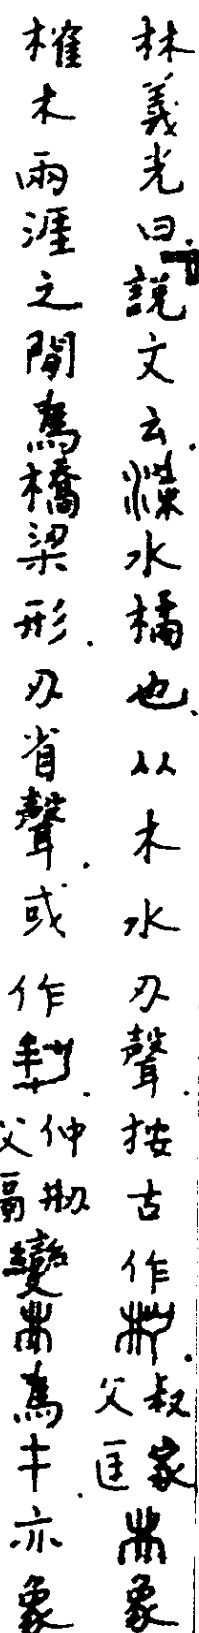 林義光曰說文云㵄水橋也从木水刅聲按古作叔家父匡象
榷木兩涯之間為橋梁形刅省聲或作仲刱父鬲變為丰亦象